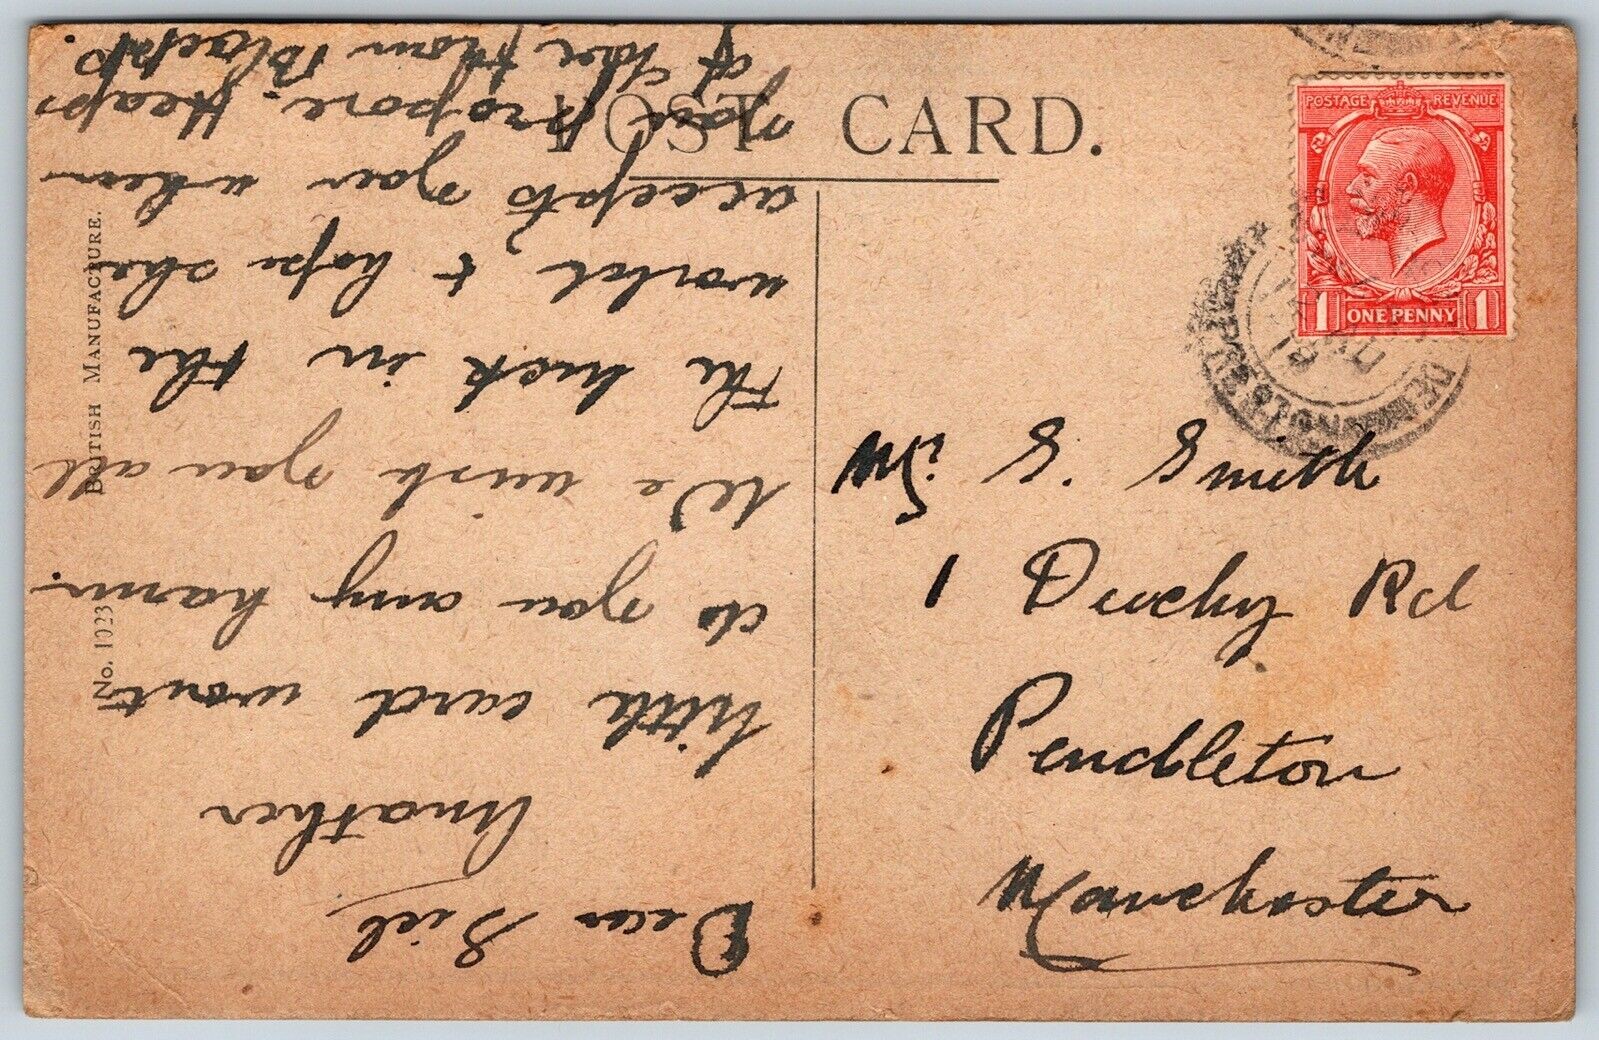 POST CARD.
POSTAGE REVENUE
1 ONE PENNY 1
E. Smith
1 Duchy Rd
Pendleton
Manchester
No. 1023
BRITISH MANUFACTURE.
Dear
Another
little card wont
do you any harm.
We wish you all
the luck in the
world, & hope she
accepts you when
you propose. Heaps
of luv from